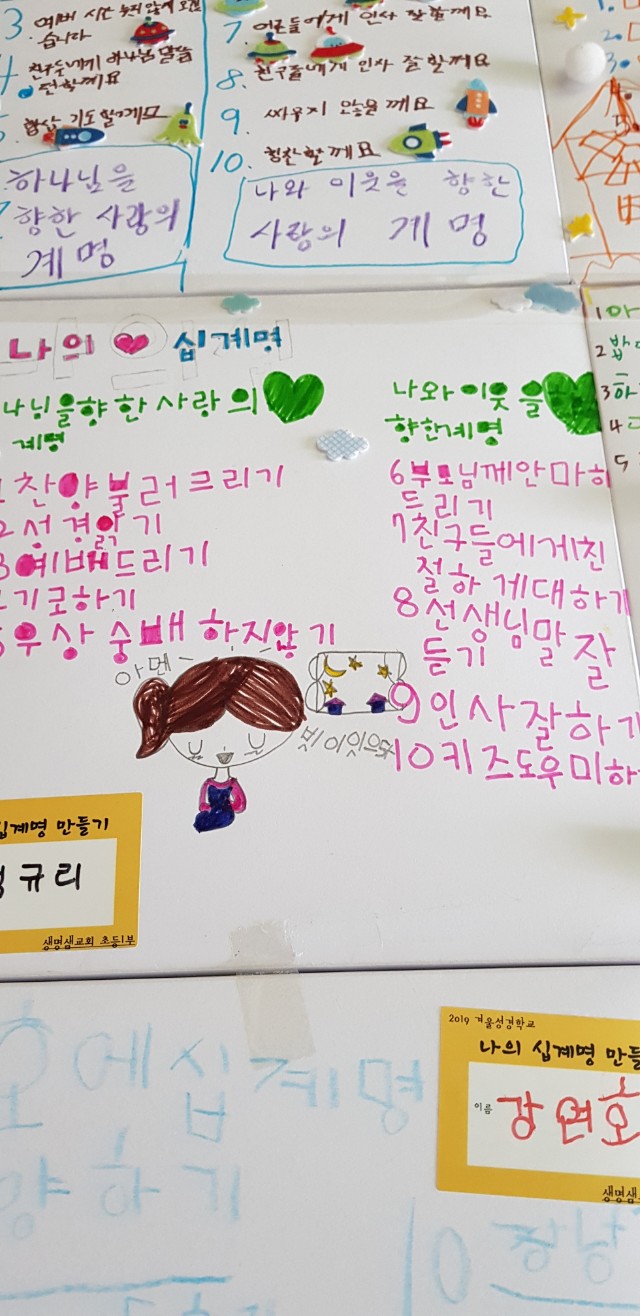 3. 예배 시간 늦지 않게 오겠
습니다
친구들에게 하나님 말씀
전할께요
항상 기도할게요
하나님을
향한 사랑의
계명
7. 어른들에게 인사 잘할께요
8. 친구들에게 인사 잘할께요
9. 싸우지 않을께요
10. 칭찬할께요
나와 이웃을 향한
사랑의 계명
나의 십계명
나님을향한사랑의
계명
찬양불러드리기
2성경읽기
3예배드리기
기도하기
우상숭배하지않기
나와이웃을
향한계명
6부모님께안마하
드리기
7친구들에게친
절하게대하기
8선생님말잘
듣기
9인사잘하기
10키즈도우미하
아멘
빛이있으라
십계명 만들기
규리
생명샘교회 초등1부
1
2
3
4
5
2019 겨울성경학교
나의 십계명 만들
이름
강연호
생명샘
십계명
하기
10